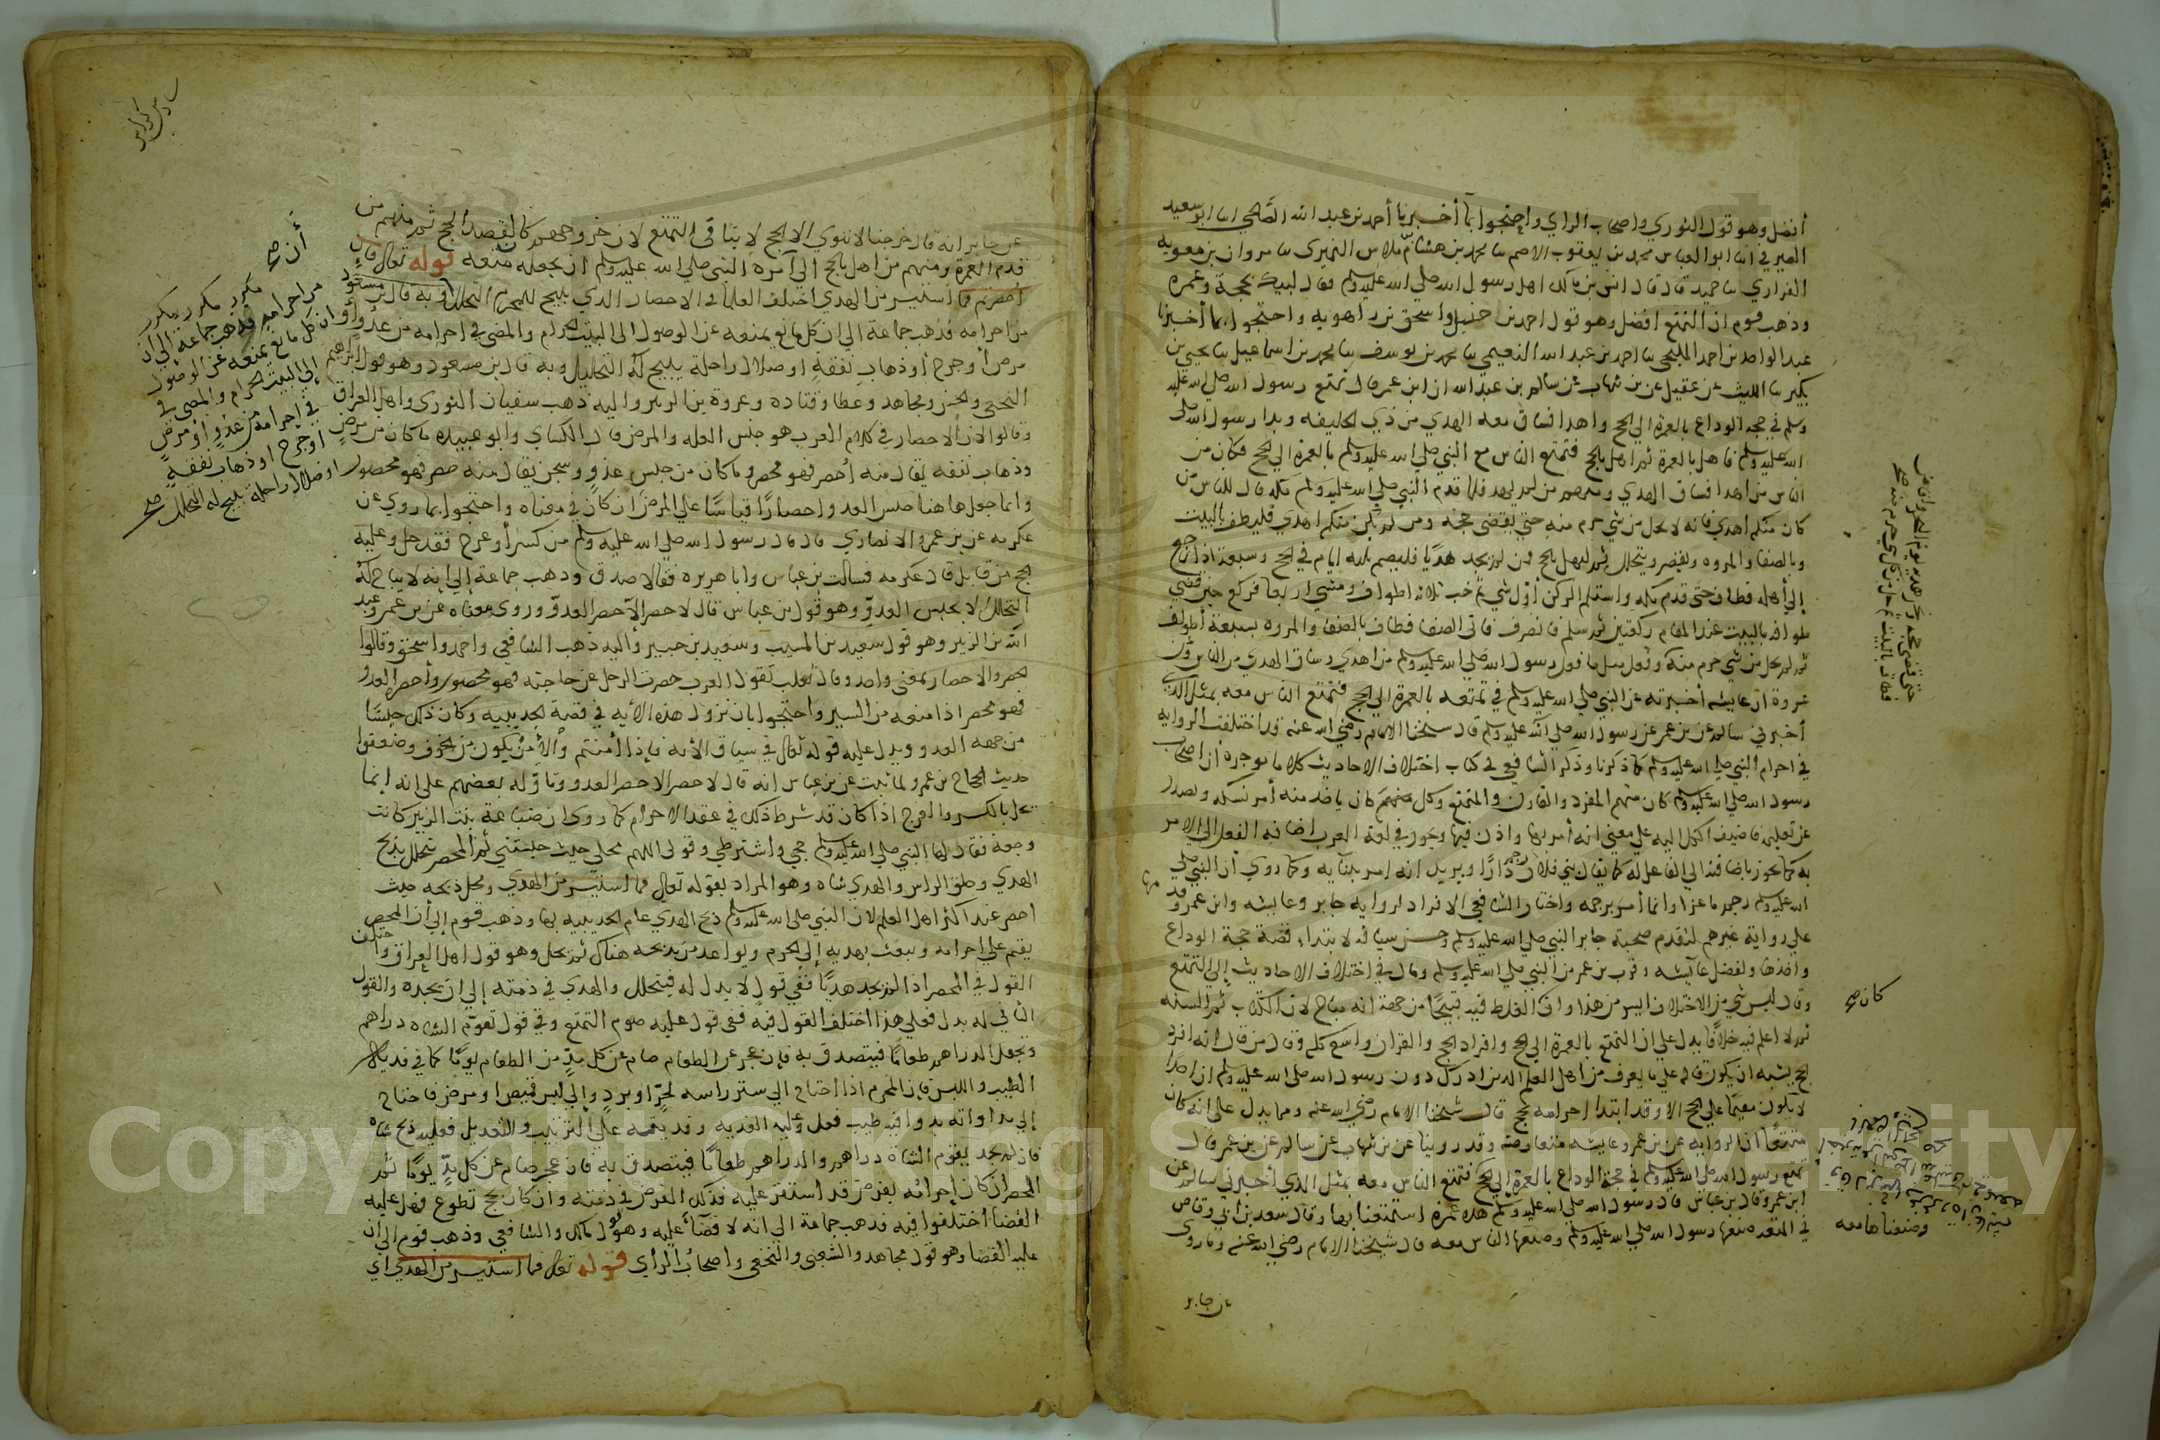 أفضل وهو قول الثوري واصحاب الراي واحتجوا بما أخبرنا أحمد بن عبد الله الصالحي انا ابو سعيد
الصيرفي انا ابو العباس محمد بن يعقوب الاصم نا محمد بن هشام بن ملاس النميري نا مروان بن معويه
الفزاري نا حميد قال قال انس بن مالك اهل رسول الله صلى الله عليه وسلم فقال لبيك بحجة وعمرة
وذهب قوم ان التمتع افضل وهو قول احمد بن حنبل واسحق بن راهويه واحتجوا بما أخبرنا
عبد الواحد بن احمد المليحي نا احمد بن عبد الله النعيمي نا محمد بن يوسف نا محمد بن اسماعيل نا يحيى بن
بكير نا الليث عن عقيل عن بن شهاب عن سالم بن عبد الله ان ابن عمر قال تمتع رسول الله صلى الله عليه
وسلم في حجة الوداع بالعمرة الى الحج واهدا فساق معه الهدي من ذي الحليفه وبدا رسول الله صلى
الله عليه وسلم فاهل بالعمرة ثم اهل بالحج فتمتع الناس مع النبي صلى الله عليه وسلم بالعمرة الى الحج فكان من
الناس من اهدا فساق الهدي ومنهم من لم يهد فلما قدم النبي صلى الله عليه وسلم مكه قال للناس من
كان منكم اهدي فانه لا يحل من شي حرم منه حتى يقضي حجه ومن لم يكن منكم اهدي فليطف بالبيت
وبالصفا والمروه وليقصر ويتحلل ثم ليهل بالحج فمن لم يجد هديا فليصم ثلثه ايام في الحج وسبعة اذا رجع
إلى أهله فطاف حتى قدم مكه واستلم الركن أول شي ثم خب ثلاثه اطواف ومشي اربعا فركع حين قضي
طوافه بالبيت عند المقام ركعتين ثم سلم فانصرف فاتى الصفا فطاف بالصفا والمروه سبعة أطواف
ثم لم يحل من شي حرم منه وفعل مثل ما فعل رسول الله صلى الله عليه وسلم من اهدي وساق الهدي من الناس وعن
عروة ان عايشه أخبرته عن النبي صلى الله عليه وسلم في تمتعه بالعمرة الى الحج فتمتع الناس معه بمثل الذي
أخبرني سالم عن بن عمر عن رسول الله صلى الله عليه وسلم قال شيخنا الامام رضي الله عنه قد اختلفت الروايه
في احرام النبي صلى الله عليه وسلم كما ذكرنا وذكر الشافعي في كتاب اختلاف الاحاديث كلاما موجزه أن اصحاب
رسول الله صلى الله عليه وسلم كان منهم المفرد والقارن والمتمتع وكل منهم كان ياخذ منه أمر نسكه ويصدر
عن تعليمه فاضيف الكل اليه على معنى انه أمر بها واذن فيها ويجوز في لغة العرب اضافه الفعل الى الامر
به كما يجوز باضافته الى الفاعل له كما يقال بني فلان دارًا ويريد انه امر ببنايه وكما روي أن النبي صلى
الله عليه وسلم رجم ماعزا وانما أمر برجمه واختار الشافعي الافراد لروايه جابر وعايشه وابن عمر وقد
على رواية غيرهم لتقدم صحبة جابر النبي صلى الله عليه وسلم وحسن سياقه لابتداء قصة حجة الوداع
واخرها ولفضل عايشه وقرب بن عمر من النبي صلى الله عليه وسلم ومال في اختلاف الاحاديث إلى التمتع
وقال ليس شي من الاختلاف ايسر من هذا وان الغلط فيه قبيحًا من جهة انه مباح لان الكتاب ثم السنه
ثم لا اعلم فيه خلافًا يدل على ان التمتع بالعمرة الى الحج وافراد الحج والقران واسع كله وقال من قال انه افرد
الحج يشبه ان يكون قاله على ما يعرف من اهل العلم الذين ادرك دون رسول الله صلى الله عليه وسلم ان احدا
لا يكون مقيمًا على الحج الا وقد ابتدا احرامه بحج قال شيخنا الامام رضي الله عنه ومما يدل على انه كان
متمتعًا ان الروايه عن بن عمر وعايشه متعارضه وقد روينا عن بن شهاب عن سالم عن بن عمر قال
تمتع رسول الله صلى الله عليه وسلم في حجة الوداع بالعمرة إلى الحج فتمتع الناس معه بمثل الذي أخبرني سالم عن
ابن عمر وقال بن عباس قال رسول الله صلى الله عليه وسلم هذه عمرة استمتعنا بها وقال سعد بن ابي وقاص
في المتعه صنعها رسول الله صلى الله عليه وسلم وصنعها الناس معه قال شيخنا الامام رضي الله عنه وما روى
عن جابر
كان صح
وصنعناها معه
عن جابر انه قال خرجنا لا ننوي الا الحج لا ينافي التمتع لان خروجهم كان لقصد الحج ثم منهم من
قدم العمرة ومنهم من اهل بالحج الى أمره النبي صلى الله عليه وسلم ان يجعله متعه قوله تعالى فان
أحصرتم فما استيسر من الهدي اختلف العلما في الاحصار الذي يبيح للمحرم التحلل وبه قال بن مسعود
من احرامه فذهب جماعة الى ان كل مانع يمنعه عن الوصول الى البيت الحرام والمضي في احرامه من عدو أو
مرض أو جرح أو ذهاب نفقةٍ او ضلال راحلة يبيح له التحليل وبه قال بن مسعود وهو قول ابراهيم
النخعي والحسن ومجاهد وعطا وقتاده وعروة بن الزبير واليه ذهب سفيان الثوري واهل العراق
وقالوا لان الاحصار في كلام العرب هو حبس العله والمرض قال الكساي وابو عبيده ما كان من مرض
وذهاب نفقه يقال منه أُحصر فهو محصر وما كان من حبس عدوٍ وسجن يقال منه حصر فهو محصور
وانما جعل هاهنا حبس العدو احصارًا قياسًا على المرض ان كان في معناه واحتجوا بما روي عن
عكرمه عن بن عمرو الانصاري قال قال رسول الله صلى الله عليه وسلم من كسر أو عرج فقد حل وعليه
الحج من قابل قال عكرمه فسالت بن عباس وابا هريره فقالا صدق وذهب جماعة إلى انه لا يباح له
التحلل لا بحبس العدوّ وهو قول بن عباس قال لا حصر الاّ حصر العدوّ وروي معناه عن بن عمر وعبد
الله بن الزبير وهو قول سعيد بن المسيب وسعيد بن جبير وأليه ذهب الشافعي واحمد واسحق وقالوا
الحصر والاحصار بمعنى واحد وقال ثعلب تقول العرب حصرت الرجل عن حاجته فهو محصور وأحصره العدو
فهو محصر اذا منعه من السير واحتجوا بان نزول هذه الايه في قصة الحديبيه وكان ذلك حبسًا
من جهه العدو ويدل عليه قوله تعالى في سياق الآيه فإذا أمنتم والأمن يكون من الخوف وضعفوا
حديث الحجاج بن عمرو لما ثبت عن بن عباس انه قال لا حصر الا حصر العدو وتاوّله بعضهم على انه إنما
يحل بالكسر والعرج اذا كان قد شرط ذلك في عقد الاحرام كما روى ان ضباعة بنت الزبير كانت
وجعة فقال لها النبي صلى الله عليه وسلم حجي واشترطي وقولي اللهم محلي حيث حبستني ثم المحصر يتحلل بذبح
الهدي وحلق الراس والهدي شاه وهو المراد بقوله تعالى فما استيسر من الهدي ومحل ذبحه حيث
احصر عند اكثر اهل العلم لان النبي صلى الله عليه وسلم ذبح الهدي عام الحديبيه بها وذهب قوم إلى أن المحصر
يقيم على احرامه ويبعث بهديه إلى الحرم ويواعد من يذبحه هناك ثم يحل وهو قول اهل العراق واختلف
القول في المحصر اذا لم يجد هديًا ففي قول لا بدل له فيتحلل والهدي في ذمته إلى ان يجده والقول
الثاني له بدل فعلى هذا اختلف القول فيه ففي قول عليه صوم التمتع وفي قول تقوّم الشاه دراهم
ويجعل الدراهم طعامًا فيتصدق به فإن عجز عن الطعام صام عن كل مدٍّ من الطعام يومًا كما في فدية
الطيب واللبس فإن المحرم اذا احتاج الى ستر راسه لحرٍّ او بردٍ وإلى لبس قميص او مرض فاحتاج
إلى مداواته بدوا فيه طيب فعل وعليه الفديه وفديته على الترتيب والتعديل فعليه ذبح شاه
فان لم يجد يقوّم الشاه دراهم والدراهم طعامًا فيتصدق به فان عجز صام عن كل مدٍّ يومًا ثم
المحصر ان كان إحرامه بفرض قد استقر عليه فذلك الفرض في ذمته وان كان بحج تطوع فهل عليه
القضا اختلفوا فيه فذهب جماعة الى انه لا قضآء عليه وهو قول مالك والشافعي وذهب قوم الى ان
عليه القضا وهو قول مجاهد والشعبي والنخعي واصحاب الرأي قوله تعالى فما استيسر من الهدي أي
أن صح
مكرر مكرر مكرر
من احرامه فذهب جماعة إلى ان
كل مانع يمنعه عن الوصول
إلى البيت الحرام والمضي في
في احرامه من عدوٍ أو مرضٍ
او جرح او ذهاب نفقةٍ
او ضلال راحلة يبيح له التحلل صح
Copy King Saud University